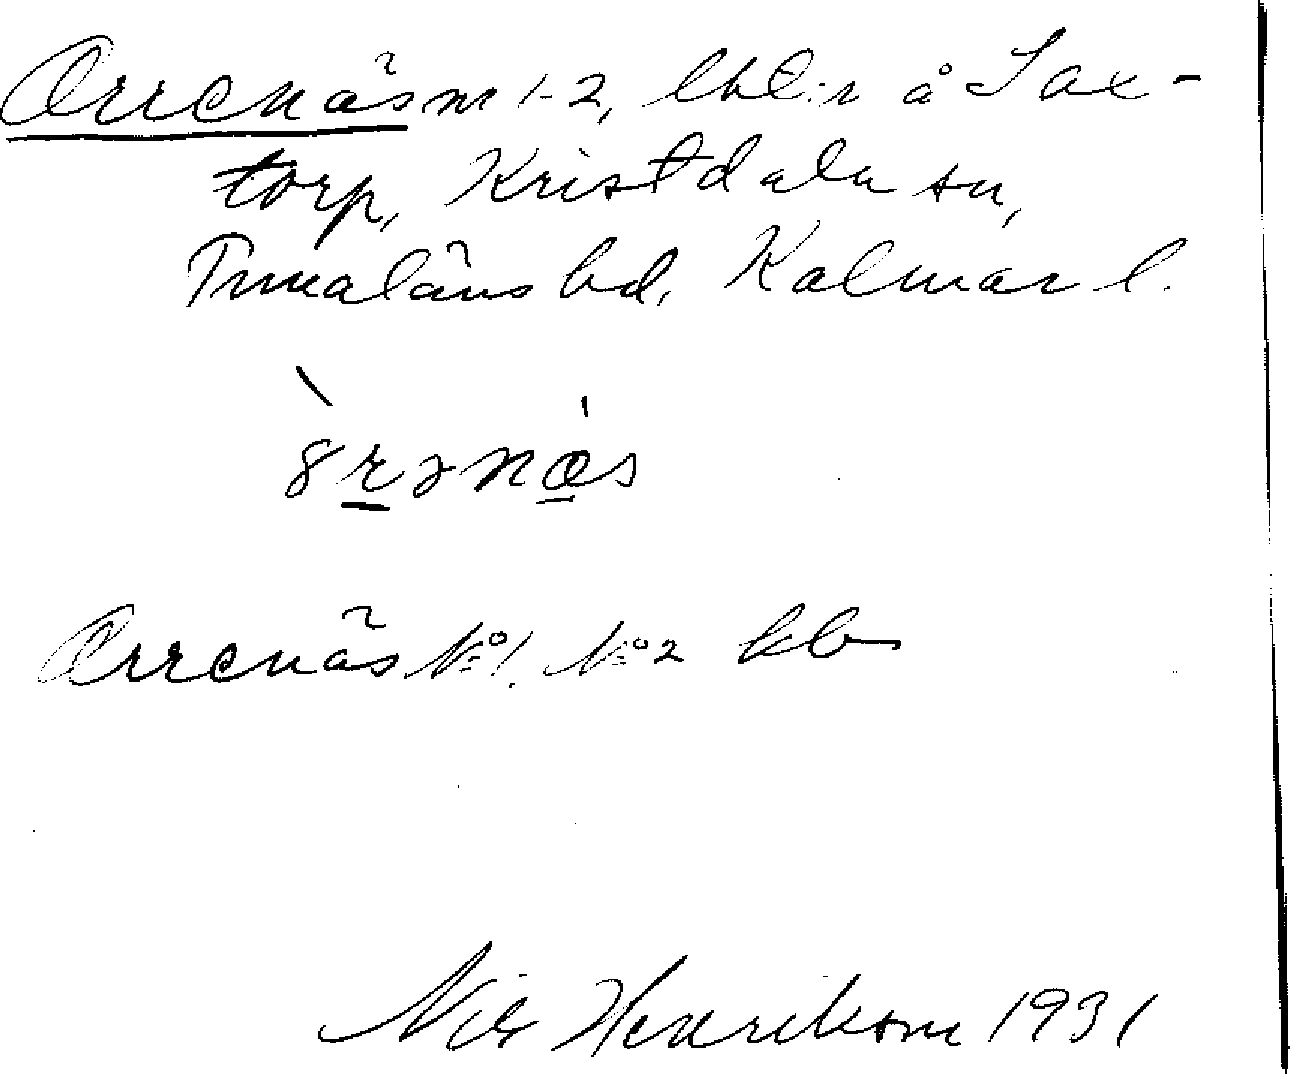 Orrenäs nr 1-2, lht:r å Sax-
torp, Kristdala sn,
Tunaläns hd, Kalmar l.
Orrenäs No 1. No 2 kb
Nils Henrikson 1931